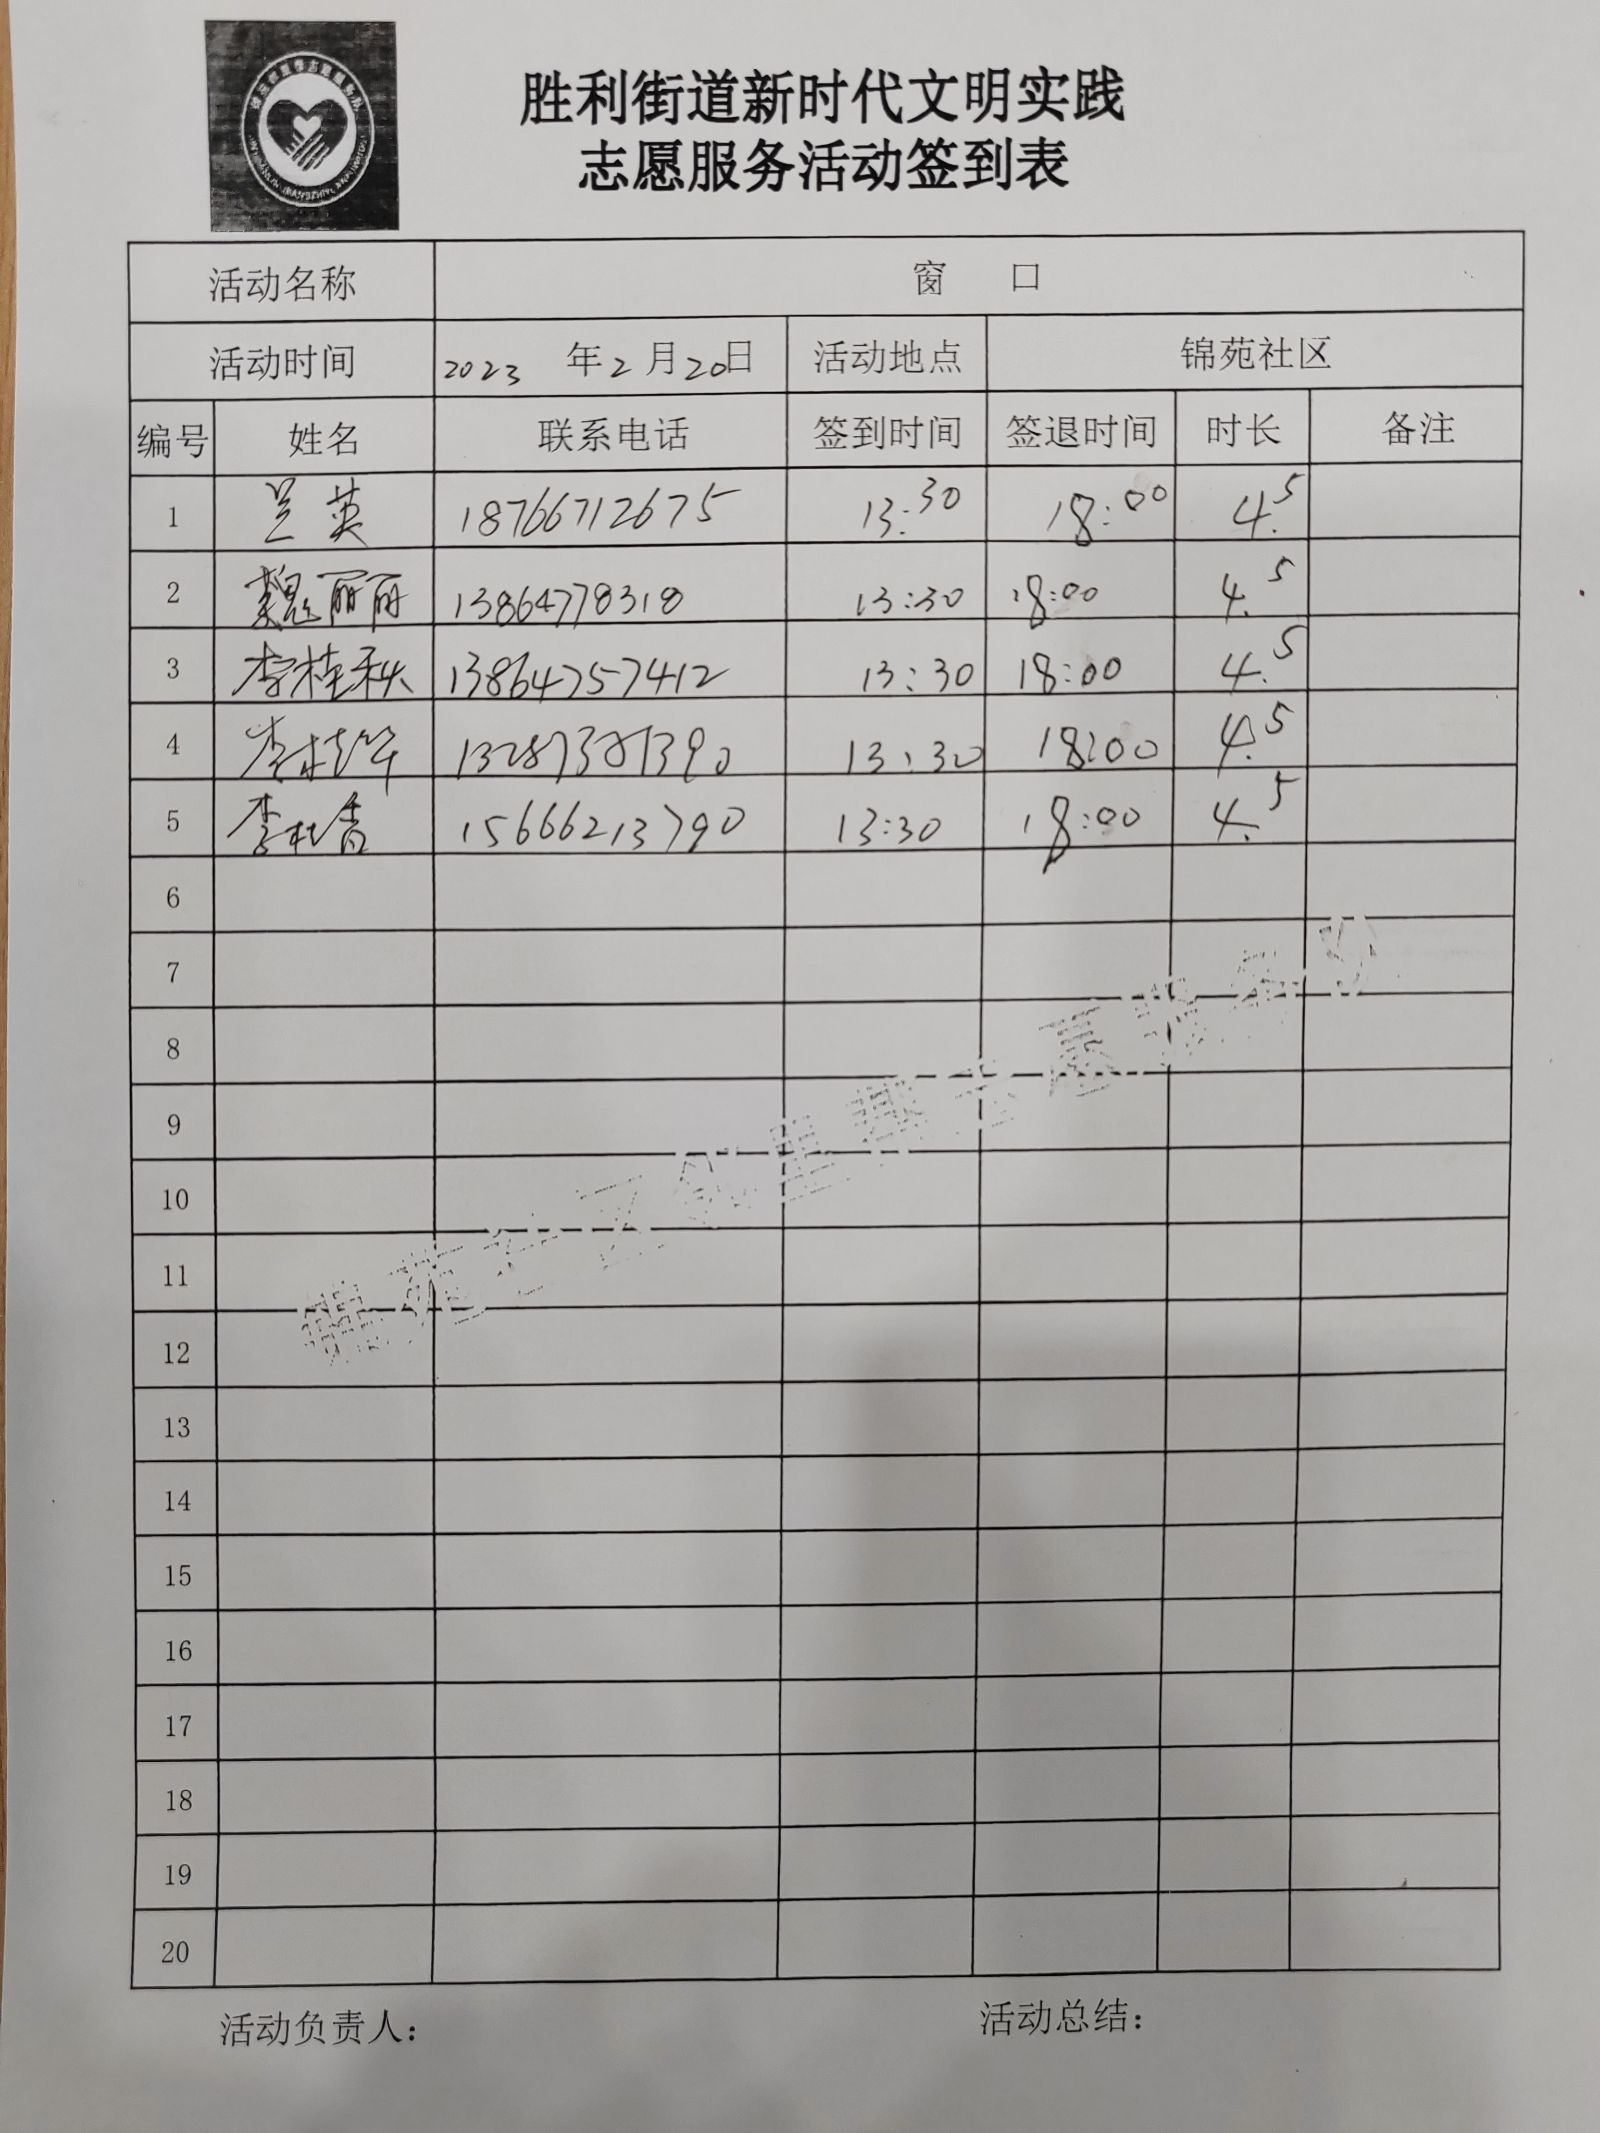 胜利街道新时代文明实践
志愿服务活动签到表
活动名称 窗 口
活动时间 2023 年 2 月 20 日 活动地点 锦苑社区
编号 姓名 联系电话 签到时间 签退时间 时长 备注
1 兰英 18766712675 13:30 18:00 4.5
2 魏丽丽 13864778318 13:30 18:00 4.5
3 李桂秋 13864757412 13:30 18:00 4.5
4 13:30 18:00 4.5
5 15666213790 13:30 18:00 4.5
6
7
8
9
10
11
12
13
14
15
16
17
18
19
20
活动负责人: 活动总结: